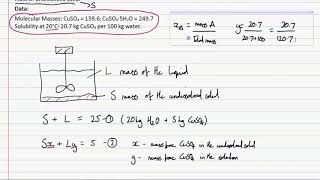 S
Data:
Molecular Masses: CuSO₄ = 159.6; CuSO₄·5H₂O = 249.7
Solubility at 20°C: 20.7 kg CuSO₄ per 100 kg water.
= mass A
Total mass
y = 20.7 / 20.7+100 = 20.7 / 120.7
L mass of the liquid
S mass of the undissolved solid
S + L = 25 - ① (20 kg H₂O + 5 kg CuSO₄)
Sx + Ly = 5 - ② x - mass frac CuSO₄ in the undissolved solid
y - mass frac CuSO₄ in the solution